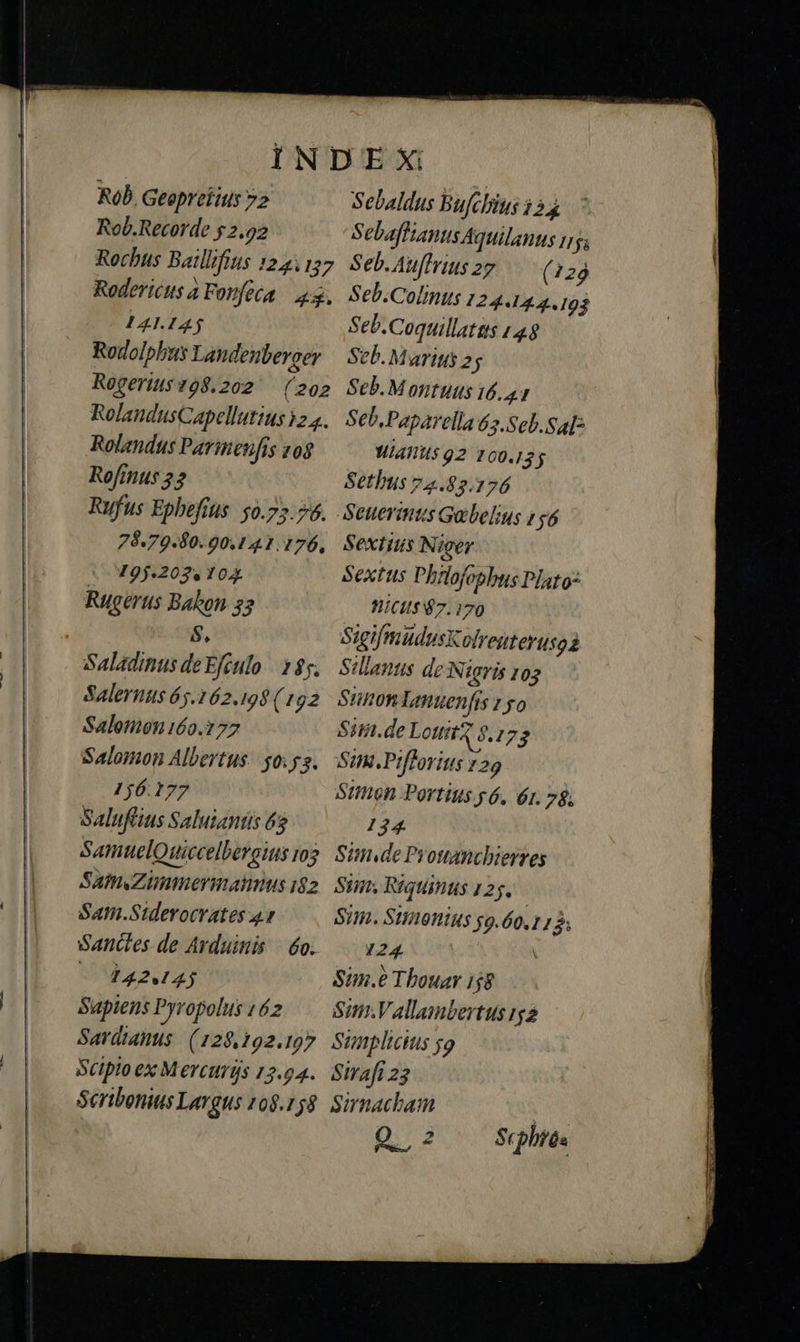 INDEX
Rob. Geopretius 72
Rob.Recorde 52.92
Rochus Bailliſius 124. 137
Rodericus à Fonſeca 44.
141.145
Rodolphus Landenberger
Rogerius 198.202 (202
RolandusCapellutius 124.
Rolandus Parmenſis 108
Roſinus 33
Rufus Epheſius 50.73.76.
78.79.80.90.141.176,
195.203. 104
Rugerus Bakon 33
S.
Saladinus de Eſculo 185.
Salernus 65.162.198 (192
Salomon 160.177
Salomon Albertus 50.53.
156.177
Saluſtius Saluiantis 63
SamuelQuiccelbergius 103
Sam.Zimmermannus 182
Sam.Siderocrates 41
Sanctes de Arduinis 60.
142.145
Sapiens Pyropolus 162
Sardianus (128.192.197
Scipio ex Mercurijs 13.94.
Scribonius Largus 108.158
Sebaldus Buſchius 134
Sebaſtianus Aquilanus 115.
Seb.Auſtrius 27 (129
Seb.Colinus 124.144.193
Seb.Coquillatus 148
Seb.Marius 25
Seb.Montuus 16.41
Seb.Paparella 63.Seb.Sal-
uianus 92 100.135
Sethus 74.83.176
Seuerinus Gœbelius 156
Sextius Niger
Sextus Philoſophus Plato-
nicus 87.170
SigiſmūdusKolreuterus92
Sillanus de Nigris 103
Simon Ianuenſis 150
Sim.de Louitz 8.173
Sim.Piſtorius 129
Simon Portius 56. 61. 78.
134
Sim.de Prouanchierres
Sim. Riquinus 125.
Sim. Simonius 59.60.113.
124
Sim.è Thouar 158
Sim.Vallambertus 152
Simplicius 59
Siraſi 23
Sirnacham
Q 2 Sephras